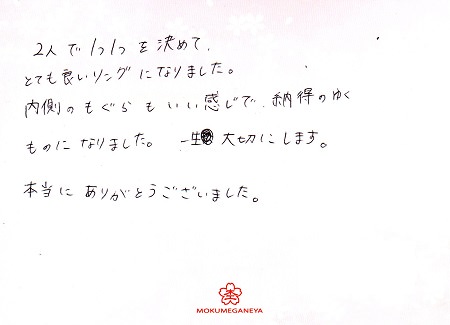 2人で1つ1つを決めて、
とても良いリングになりました。
内側のもぐらもいい感じで、納得のゆく
ものになりました。一生大切にします。
本当にありがとうございました。
MOKUMEGANEYA